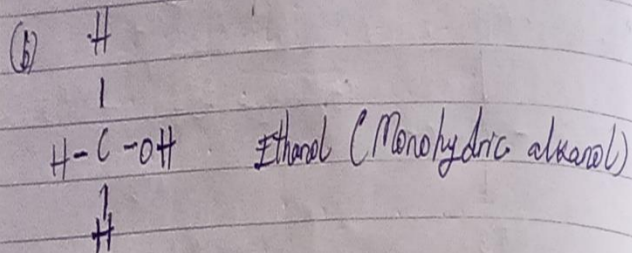 (b) H
|
H-C-OH Ethanol (Monohydric alkanol)
|
H